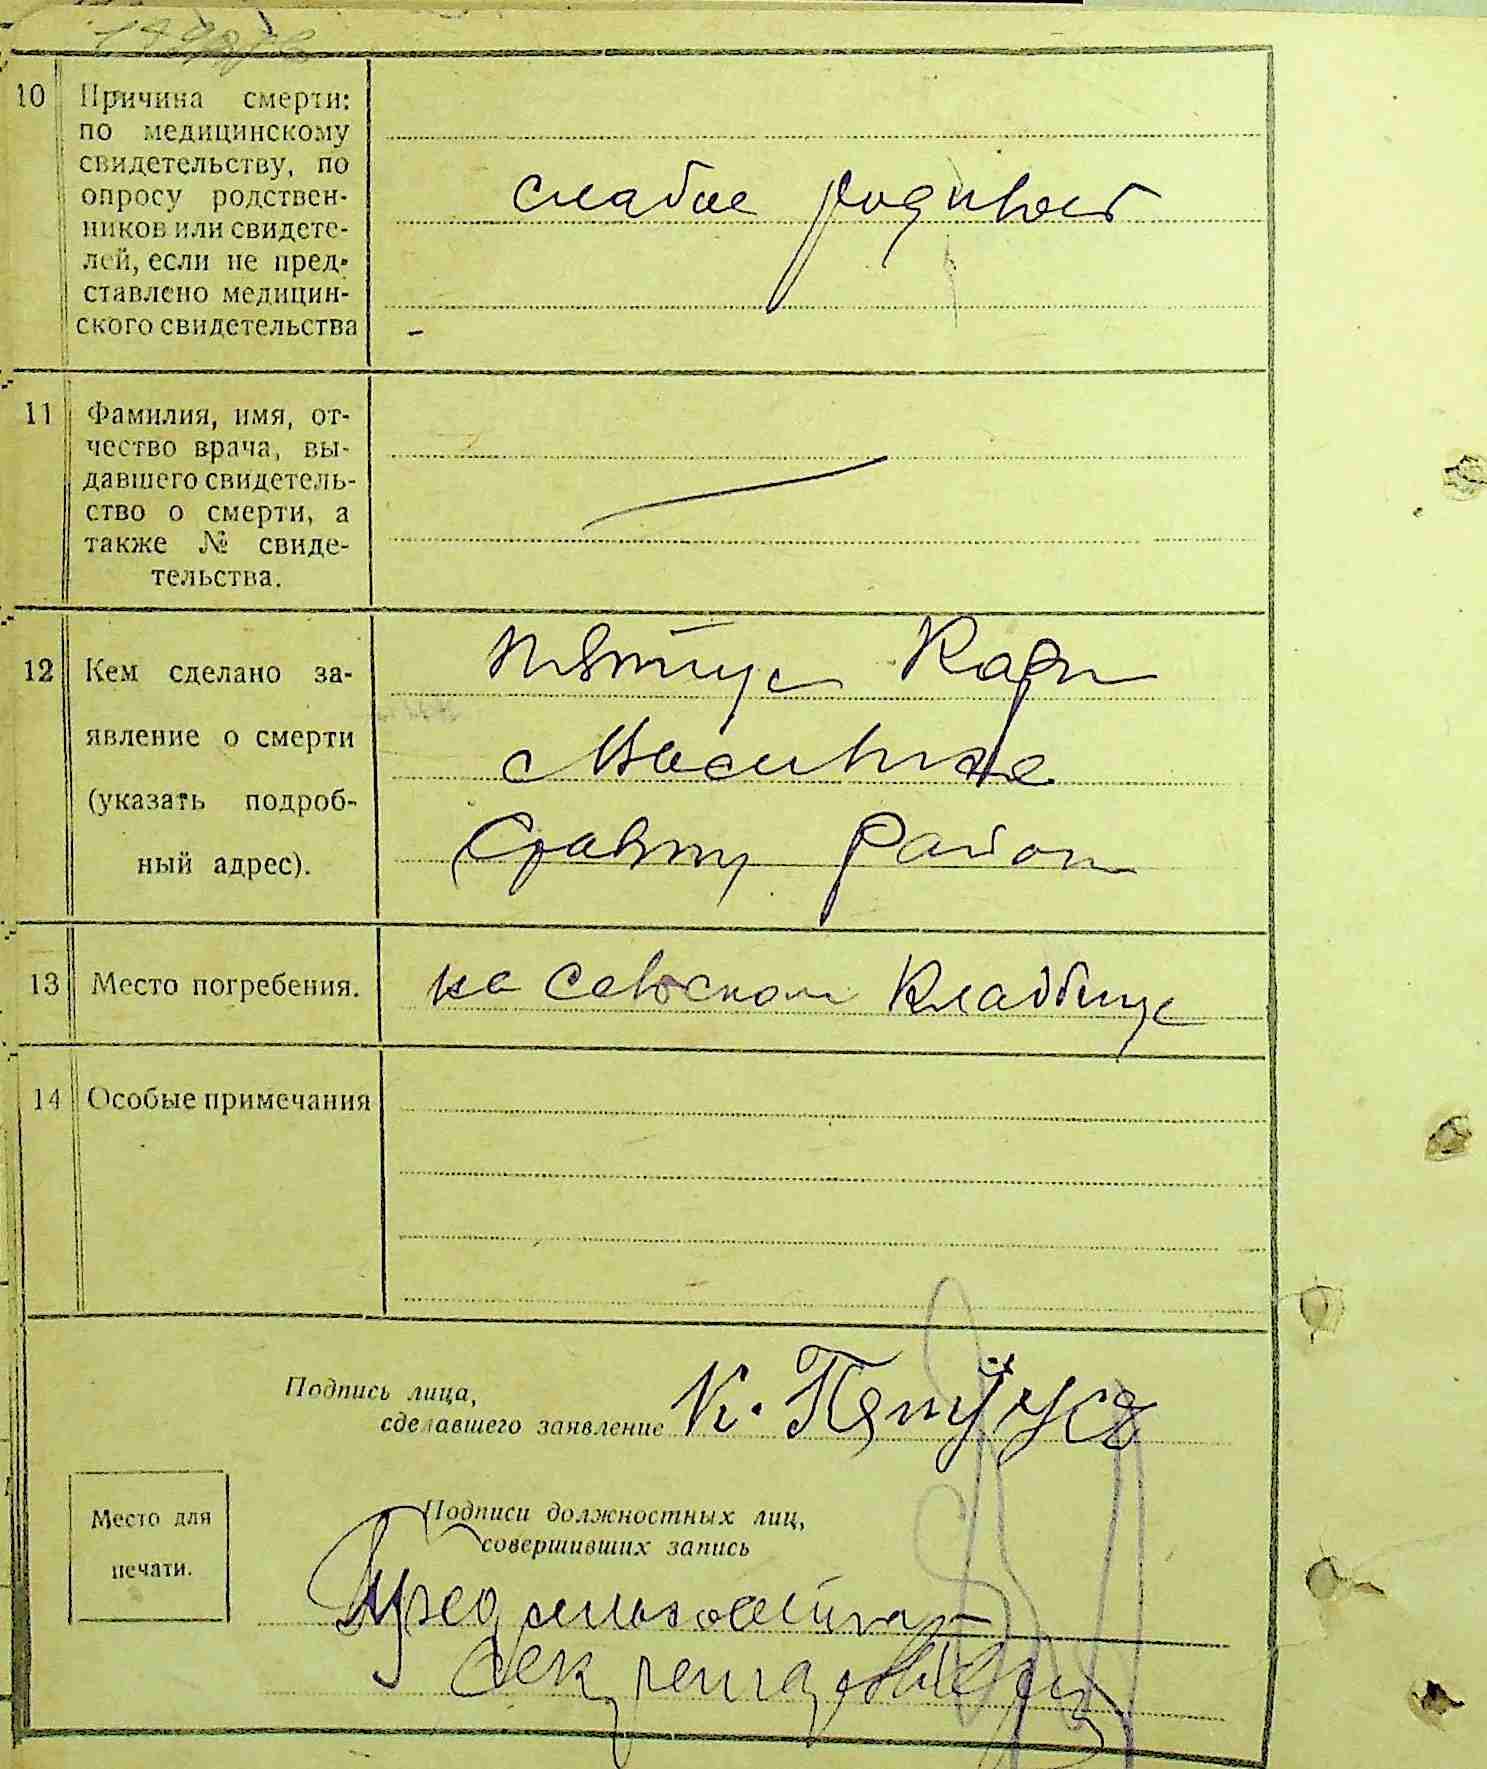 10 Причина смерти:
по медицинскому
свидетельству, по
опросу родствен-
ников или свидете-
лей, если не пред-
ставлено медицин-
ского свидетельства
слабое
11 Фамилия, имя, от-
чество врача, вы-
давшего свидетель-
ство о смерти, а
также № свиде-
тельства.
12 Кем сделано за-
явление о смерти
(указать подроб-
ный адрес).
Карп
район
13 Место погребения.
на сельском кладбище
14 Особые примечания
Подпись лица,
сделавшего заявление К.
Место для
печати.
Подписи должностных лиц,
совершивших запись
Пред сельсовета
Секретарь